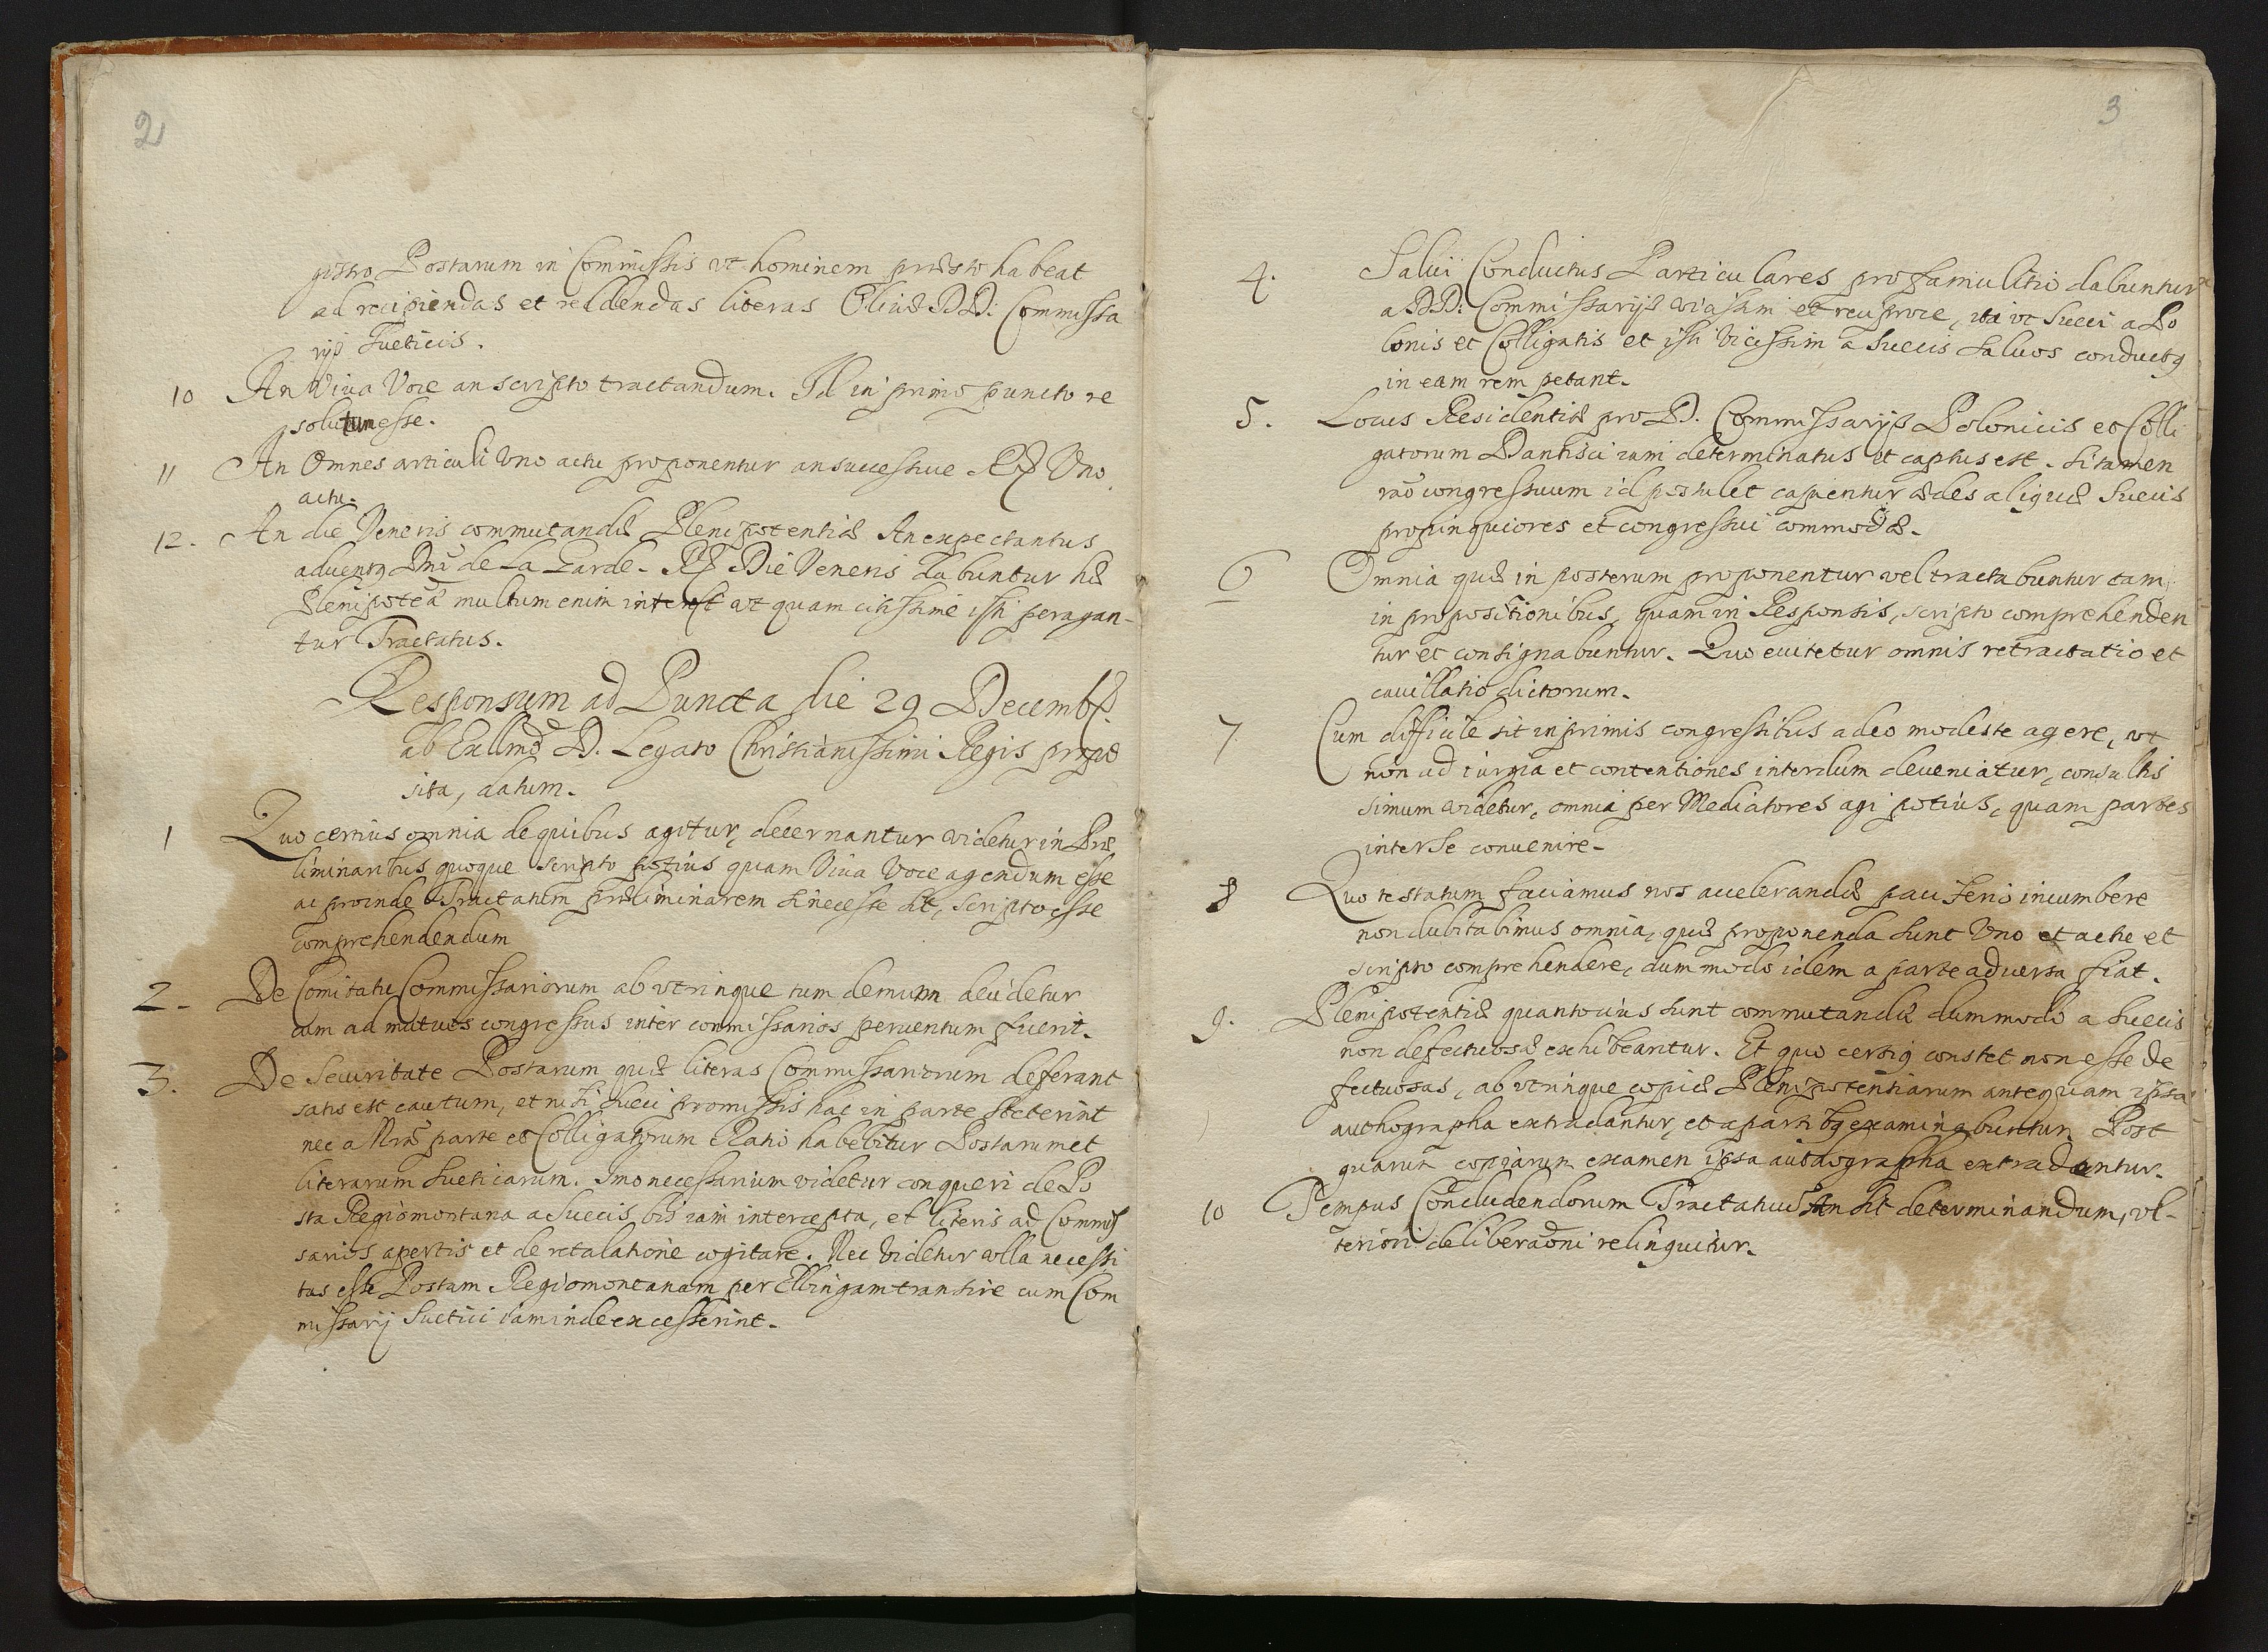 2
gistro Postarum in Commissis vt hominem præsto habeat
ad recipiendas et reddendas literas Olivæ DD: Commissa
rijs Sueticis.
10 An Viua Voce an scripto tractandum. Id in primo puncto re
solutum esse.
11 An Omnes articuli Vno actu proponentur an successiue Rx Vno
actu.
12. An die Veneris commutandæ Plenipotentiæ An expectantus
aduentq Dni de La Garde. Rx Die Veneris dabuntur hæ
Plenipotēæ multum enim interest vt quam citissime isti peragan-
tur Tractatus.
Responsum ad Puncta die 29 Decembr.
ab Exllmo D. Legato Christianissimi Regis propo
sita, datum.
1 Quo certius omnia de quibus agitur, decernantur videtur in Præ
liminaribus quoque scripto potius quam Viua Voce agendum esse
ac proinde Tractatum præliminarem si necesse sit, scripto esse
comprehendendum
2. De Comitatu Commissariorum ab vtrinque tum demum decidetur
cum ad mutuos congressus inter conmissarios peruentum fuerit.
3. De Securitate Postarum quæ literas Commissariorum deferant
satis est cautum, et nisi Sueci promissis hac in parte steterint
nec a Nrã parte et Colligatorum Ratio habebitur Postarum et
literarum Sueticarum. Imo necessarium videtur conqueri de Po
sta Regiomontana a Suecis bis iam intercepta, et literis ad Commis
sarios apertis et de retaliatione cogitare. Nec Videtur vlla necessi
tas esse Postam Regiomontanam per Elbingam transire cum Com
missarij Suetici iam inde excesserint.
3
4. Salui Conductus Particulares pro famulitio dabuntur
a DD: Commissarijs viasam et reciproce, ita vt Sueci a Po
lonis et Colligatis et isti Vicissim a Suecis saluos conductq
in eam rem petant.
5. Locus Residentiæ pro DD. Commissarijs Polonicis et Colli
gatorum Dantisci iam determinatus et captus est. Si tamen
raõ congressuum id postulet capientur ædes aliquæ Suecis
propinquiores et congressui commodæ.
6 Omnia quæ in posterum proponentur vel tractabuntur tam
in propositionibus, quam in Responsis, scripto comprehenden
tur et consignabuntur. Quo euitetur omnis retractatio et
cauillatio dictorum.
7 Cum difficile sit in primis congressibus adeo modeste agere, vt
non ad iurgia et contentiones interdum deueniatur, consultis
simum videtur, omnia per Mediatores agi potius, quam partes
inter se conuenire.
8 Quo testatum faciamus nos accelerandæ paci serio incumbere
non dubitabimus omnia, quæ proponenda sunt Vno et actu et
scripto comprehendere, dum modo idem a parte aduersa fiat.
9. Plenipotentiæ quantocius sunt commutandæ dummodo a Suecis
non defectuosæ exhibeantur. Et quo certiq constet non esse de
fectuosas, ab vtrinque copiæ Plenipotentiarum antequam ipsa
authographa extradantur, et a partibq examinabuntur. Post
quarum copiarum examen ipsa autographa extradantur.
10 Tempus Concludendorum Tractatuum An sit determinandum, vl-
teriori deliberaõni relinquitur.